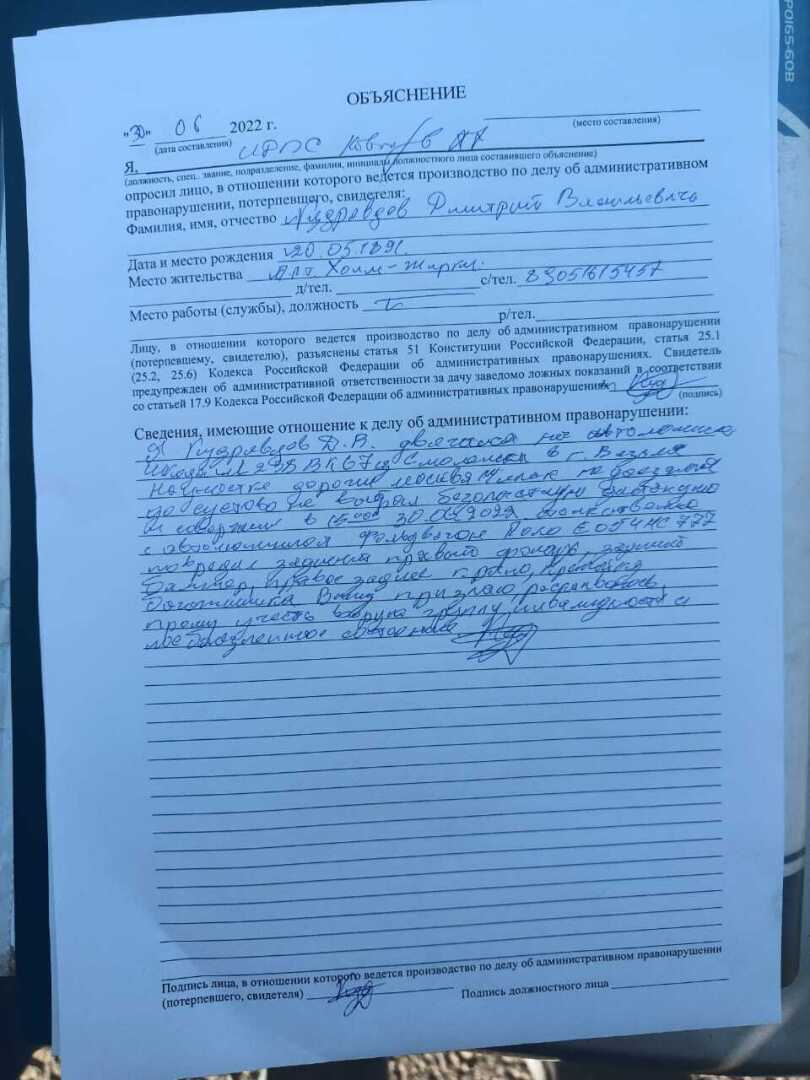 PO165-60B
ОБЪЯСНЕНИЕ
"30" 06 2022 г.
(дата составления) (место составления)
Я, ИДПС
(должность, спец. звание, подразделение, фамилия, инициалы должностного лица составившего объяснение)
опросил лицо, в отношении которого ведется производство по делу об административном
правонарушении, потерпевшего, свидетеля:
Фамилия, имя, отчество Дмитрий Васильевич
Дата и место рождения 20.05.1891
Место жительства Холм-Жирк.
д/тел. с/тел. 89051615457
Место работы (службы), должность
р/тел.
Лицу, в отношении которого ведется производство по делу об административном правонарушении
(потерпевшему, свидетелю), разъяснены статья 51 Конституции Российской Федерации, статья 25.1
(25.2, 25.6) Кодекса Российской Федерации об административных правонарушениях. Свидетель
предупрежден об административной ответственности за дачу заведомо ложных показаний в соответствии
со статьей 17.9 Кодекса Российской Федерации об административных правонарушениях
(подпись)
Сведения, имеющие отношение к делу об административном правонарушении:
Я Д.В. двигался на автомобиле
из Смоленска в г. Вязьма
На участке дороги Москва Минск не доезжая
до не выбрал безопасную дистанцию
и совершил в 15:00 30.06.2022 столкновение
с автомобилем Фольцваген Поло Е054НС777
повредил задний правый фонарь, задний
бампер, правое заднее крыло,
багажника Вину признаю, раскаиваюсь,
прошу учесть вторую группу инвалидности и
Подпись лица, в отношении которого ведется производство по делу об административном правонарушении
(потерпевшего, свидетеля) Подпись должностного лица